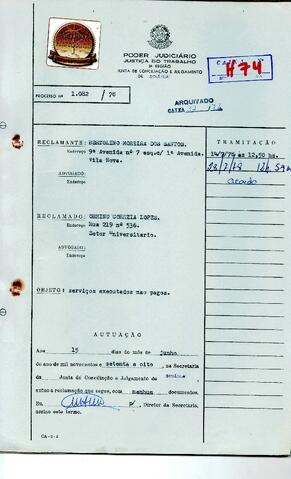 PODER JUDICIÁRIO
JUSTIÇA DO TRABALHO
3ª REGIÃO
JUNTA DE CONCILIAÇÃO E JULGAMENTO
DE GOIÂNIA
474
PROCESSO Nº 1.082 / 78
ARQUIVADO
CAIXA
RECLAMANTE: BERTOLINO MOREIRA DOS SANTOS.
Endereço 9ª Avenida nº 7 esq.c/ 1ª Avenida.
Vila Nova.
ADVOGADO:
Endereço
RECLAMADO: OSMINO CORREIA LOPES.
Endereço Rua 219 nº 536.
Setor Universitario.
ADVOGADO:
Endereço
OBJETO: serviços executados não pagos.
TRAMITAÇÃO
14/7/78 às 12,50 hs.
acordo
AUTUAÇÃO
Aos 15 dias do mês de junho
do ano de mil novecentos e setenta e oito, na Secretaria
da Junta de Conciliação e Julgamento de Goiânia
autuo a reclamação que segue, com nenhum documentos.
Eu P/ Diretor da Secretaria,
assino este termo.